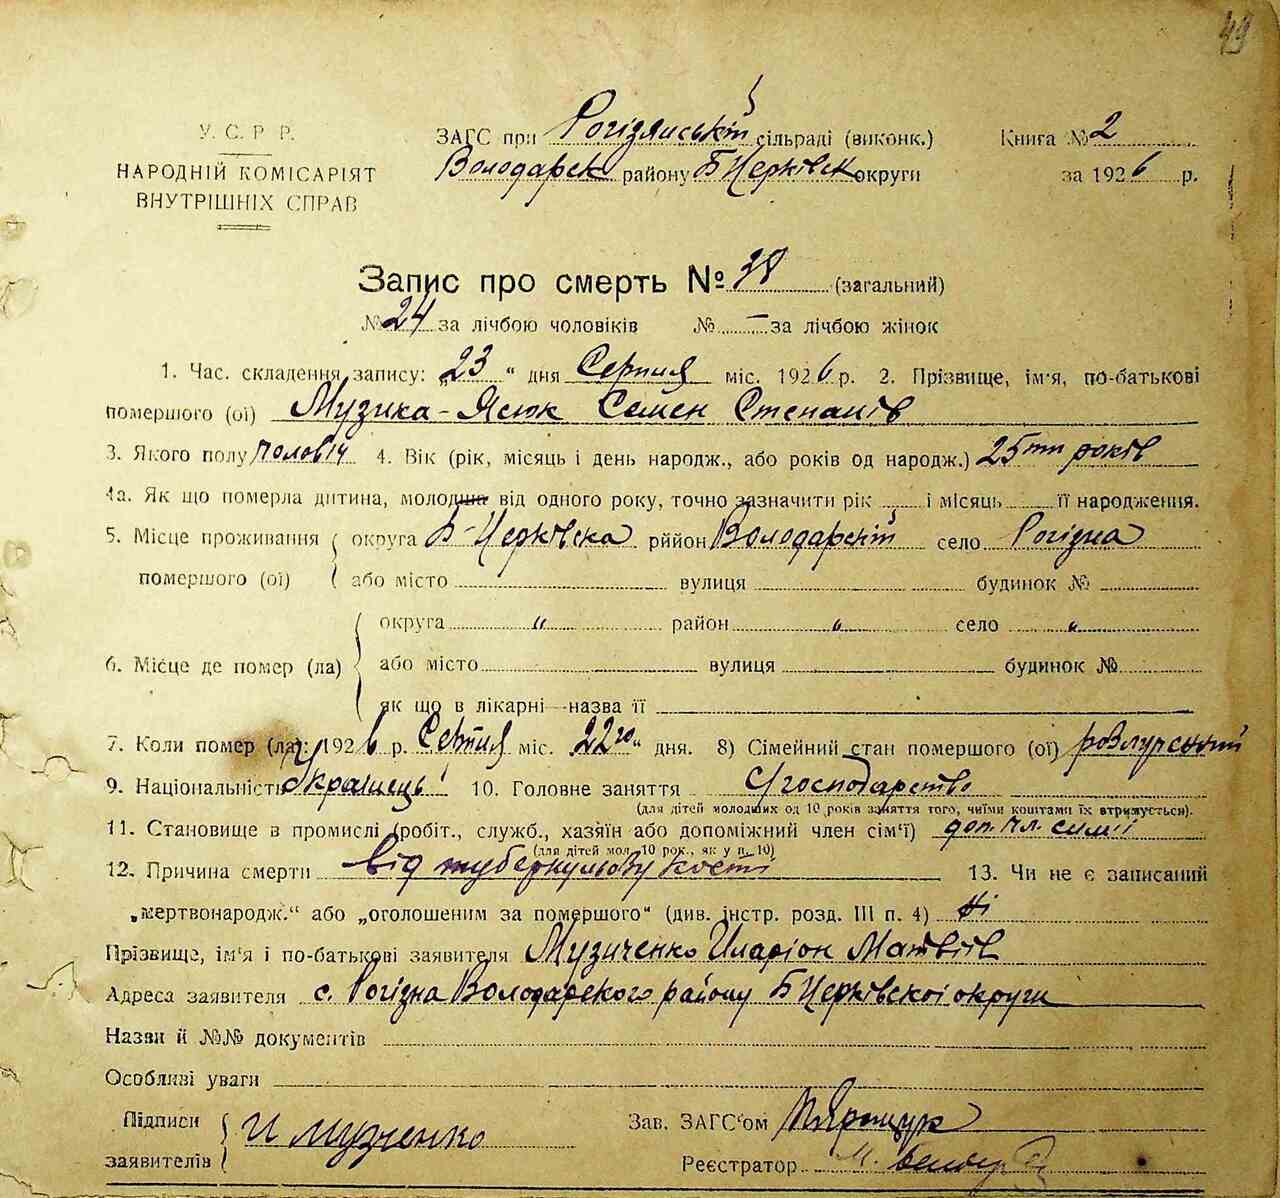 49
У. С. Р. Р.
НАРОДНІЙ КОМІСАРІЯТ
ВНУТРІШНІХ СПРАВ
ЗАГС при Рогізянській сільраді (виконк.)
Володарск району Б Церківск округи
Книга № 2
за 1926 р.
Запис про смерть № 38 (загальний)
№ 24 за лічбою чоловіків № — за лічбою жінок
1. Час складення запису: „23“ дня Серпня міс. 1926 р. 2. Прізвище, ім'я, по-батькові
помершого (ої) Музика-Ясюк Семен Степанів
3. Якого полу чоловіч 4. Вік (рік, місяць і день народж., або років од народж.) 25ти років
4а. Як що померла дитина, молодша від одного року, точно зазначити рік і місяць її народження.
5. Місце проживання помершого (ої) округа Б-Церківска рййон Володарскій село Рогізна
або місто вулиця будинок №
6. Місце де помер (ла) округа " район " село "
або місто вулиця будинок №
як що в лікарні—назва її
7. Коли помер (ла): 1926 р. Серпня міс. 22го“ дня. 8) Сімейний стан помершого (ої)
9. Національність Українець 10. Головне заняття С/господарство
(для дітей молодших од 10 років заняття того, чиїми коштами їх втримується).
11. Становище в промислі (робіт., служб., хазяїн або допоміжний член сім'ї) доп. чл. симї
(для дітей мол. 10 рок., як у п. 10)
12. Причина смерти від туберкульозу кості 13. Чи не є записаний
„мертвонародж.“ або „оголошеним за помершого“ (див. інстр. розд. III п. 4) Ні
Прізвище, ім'я і по-батькові заявителя Музиченко Иларіон Матвіїв
Адреса заявителя с. Рогізна Володарского району Б Церківскої округи
Назви й №№ документів
Особливі уваги
Підписи заявителів И Музченко
Зав. ЗАГС'ом
Реєстратор